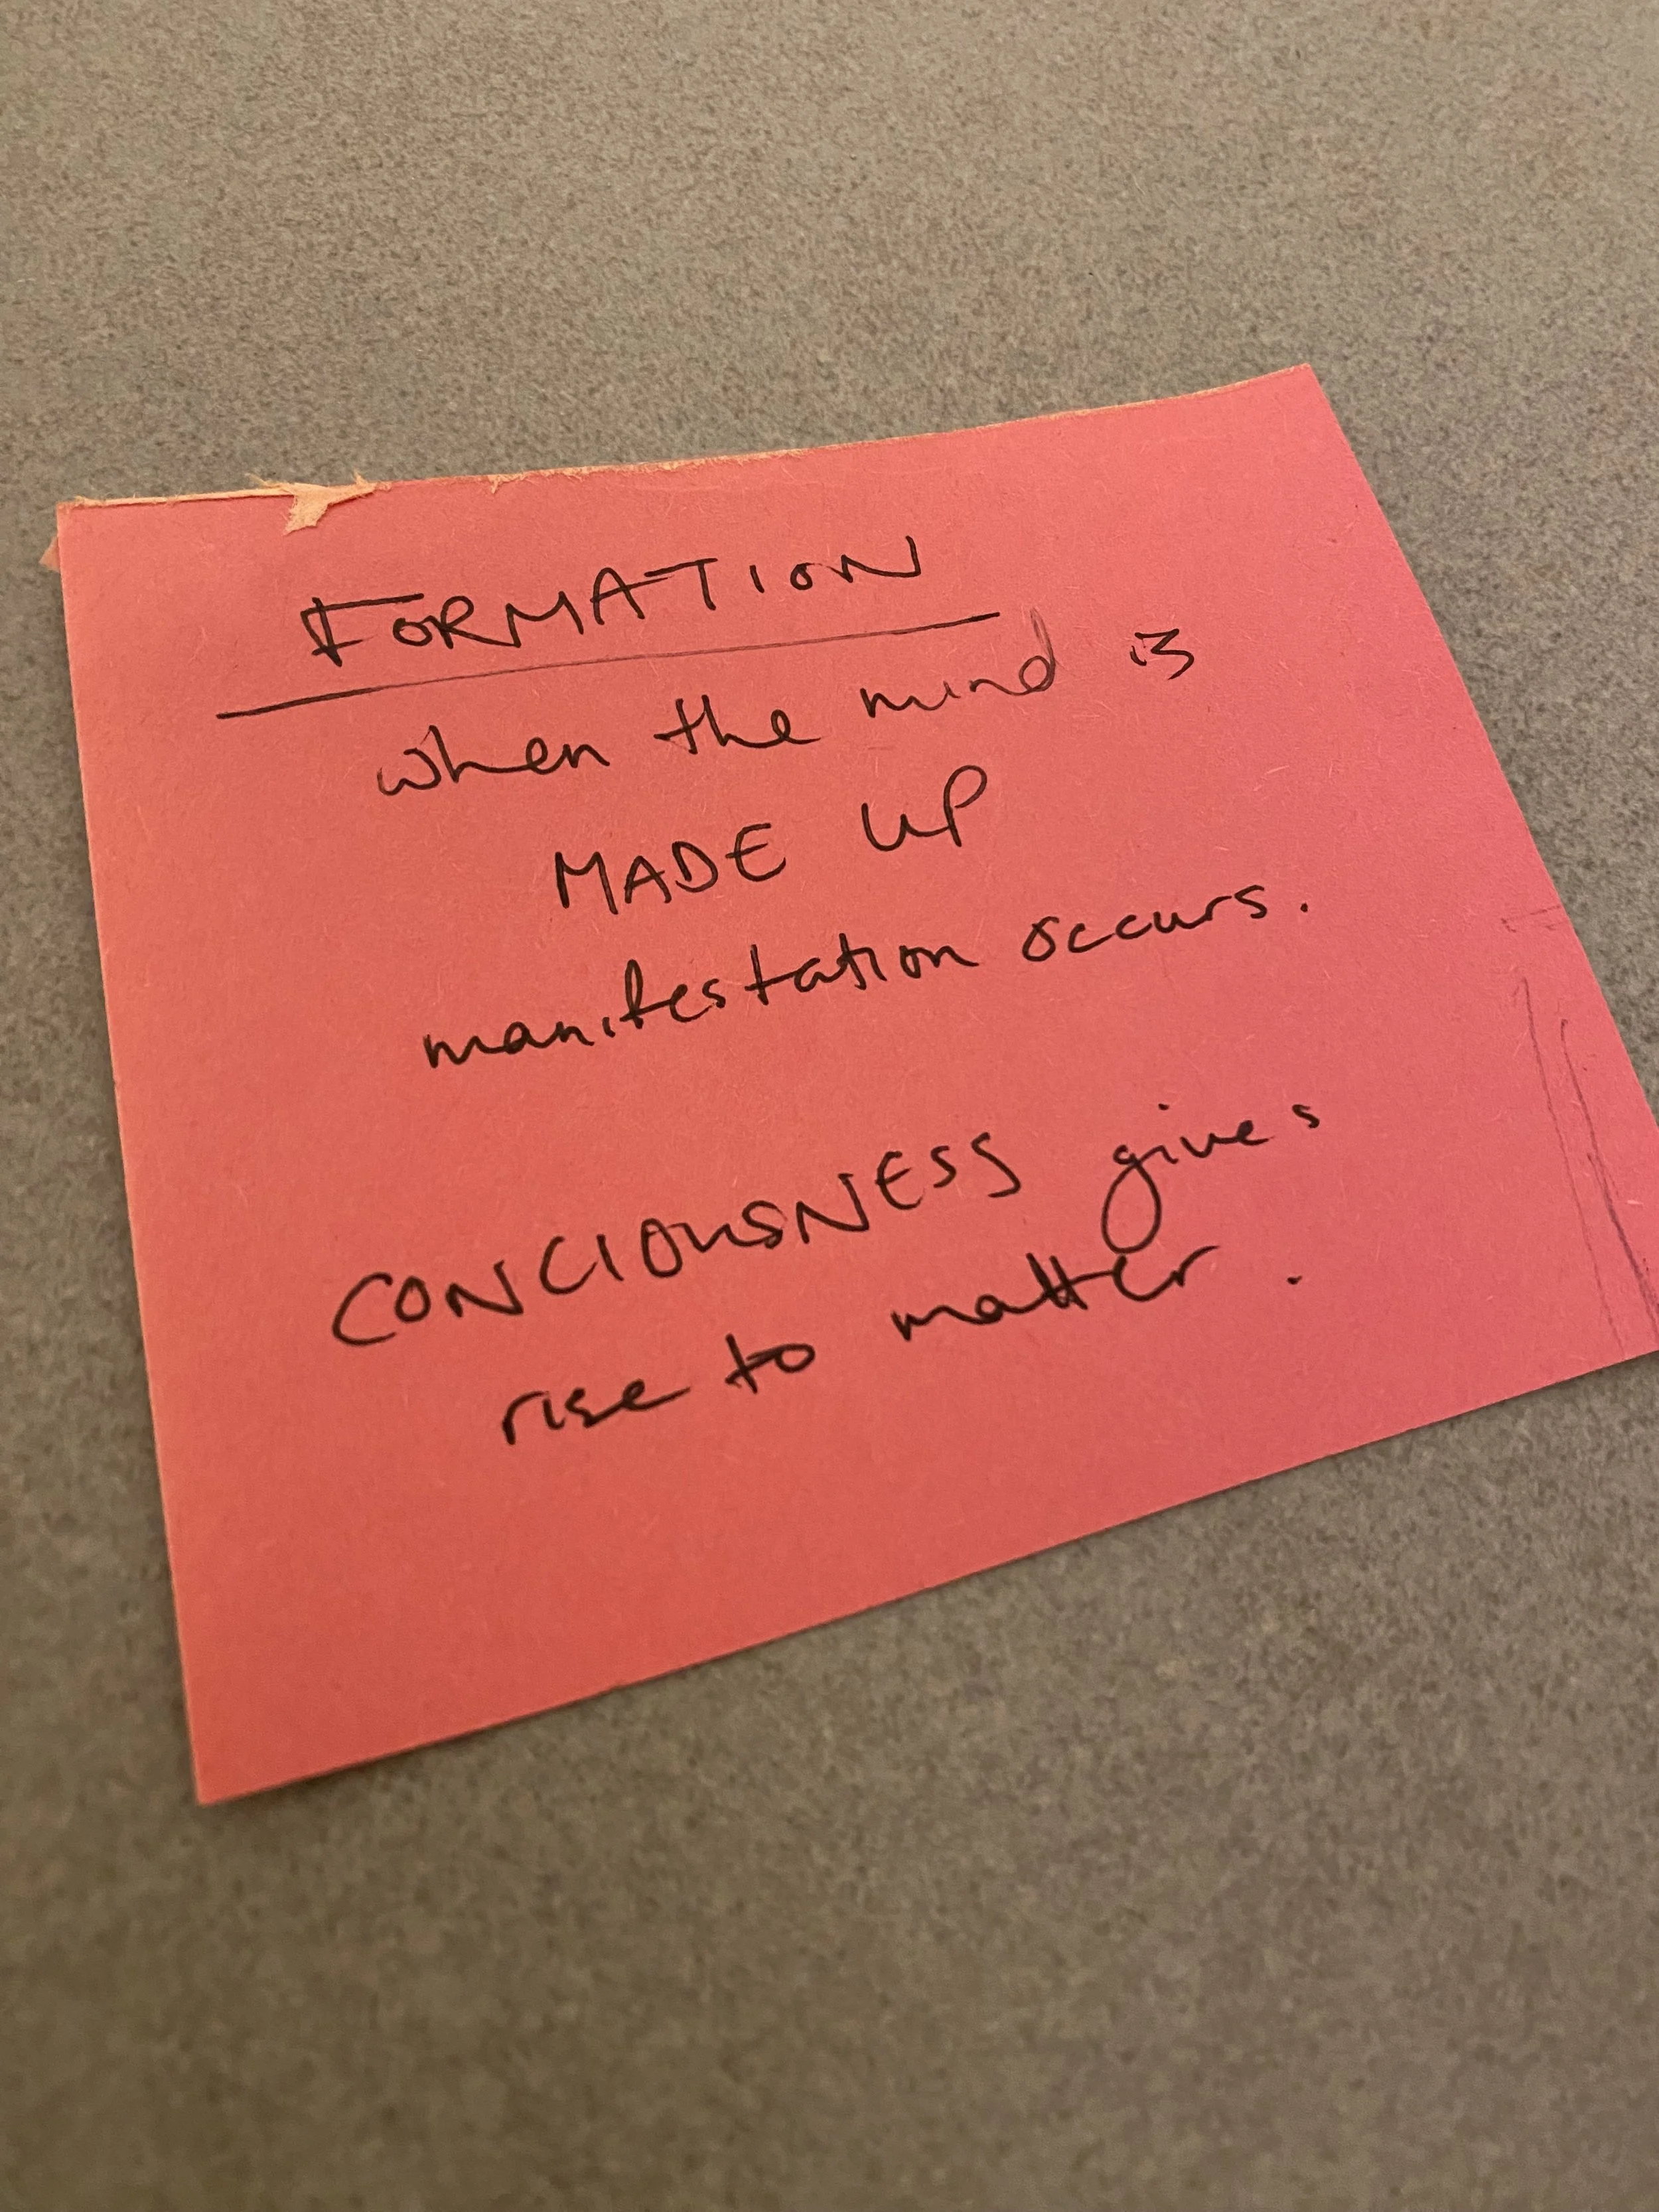 FORMATION
when the mind is
MADE UP
manifestation occurs.
CONCIOUSNESS gives
rise to matter.